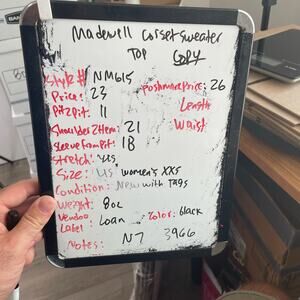 Madewell Corset sweater
Top Copy
Style # NM615
Price: 23 Poshmark Price: 26
Pit2Pit: 11 Length:
Shoulder2Hem: 21 Waist:
Sleeve from Pit: 18
Stretch: yes
Size: US women's XXS
Condition: New with Tags
Weight: 8oz
Vendoo Label: Loan Color: black
Notes: N7 3966